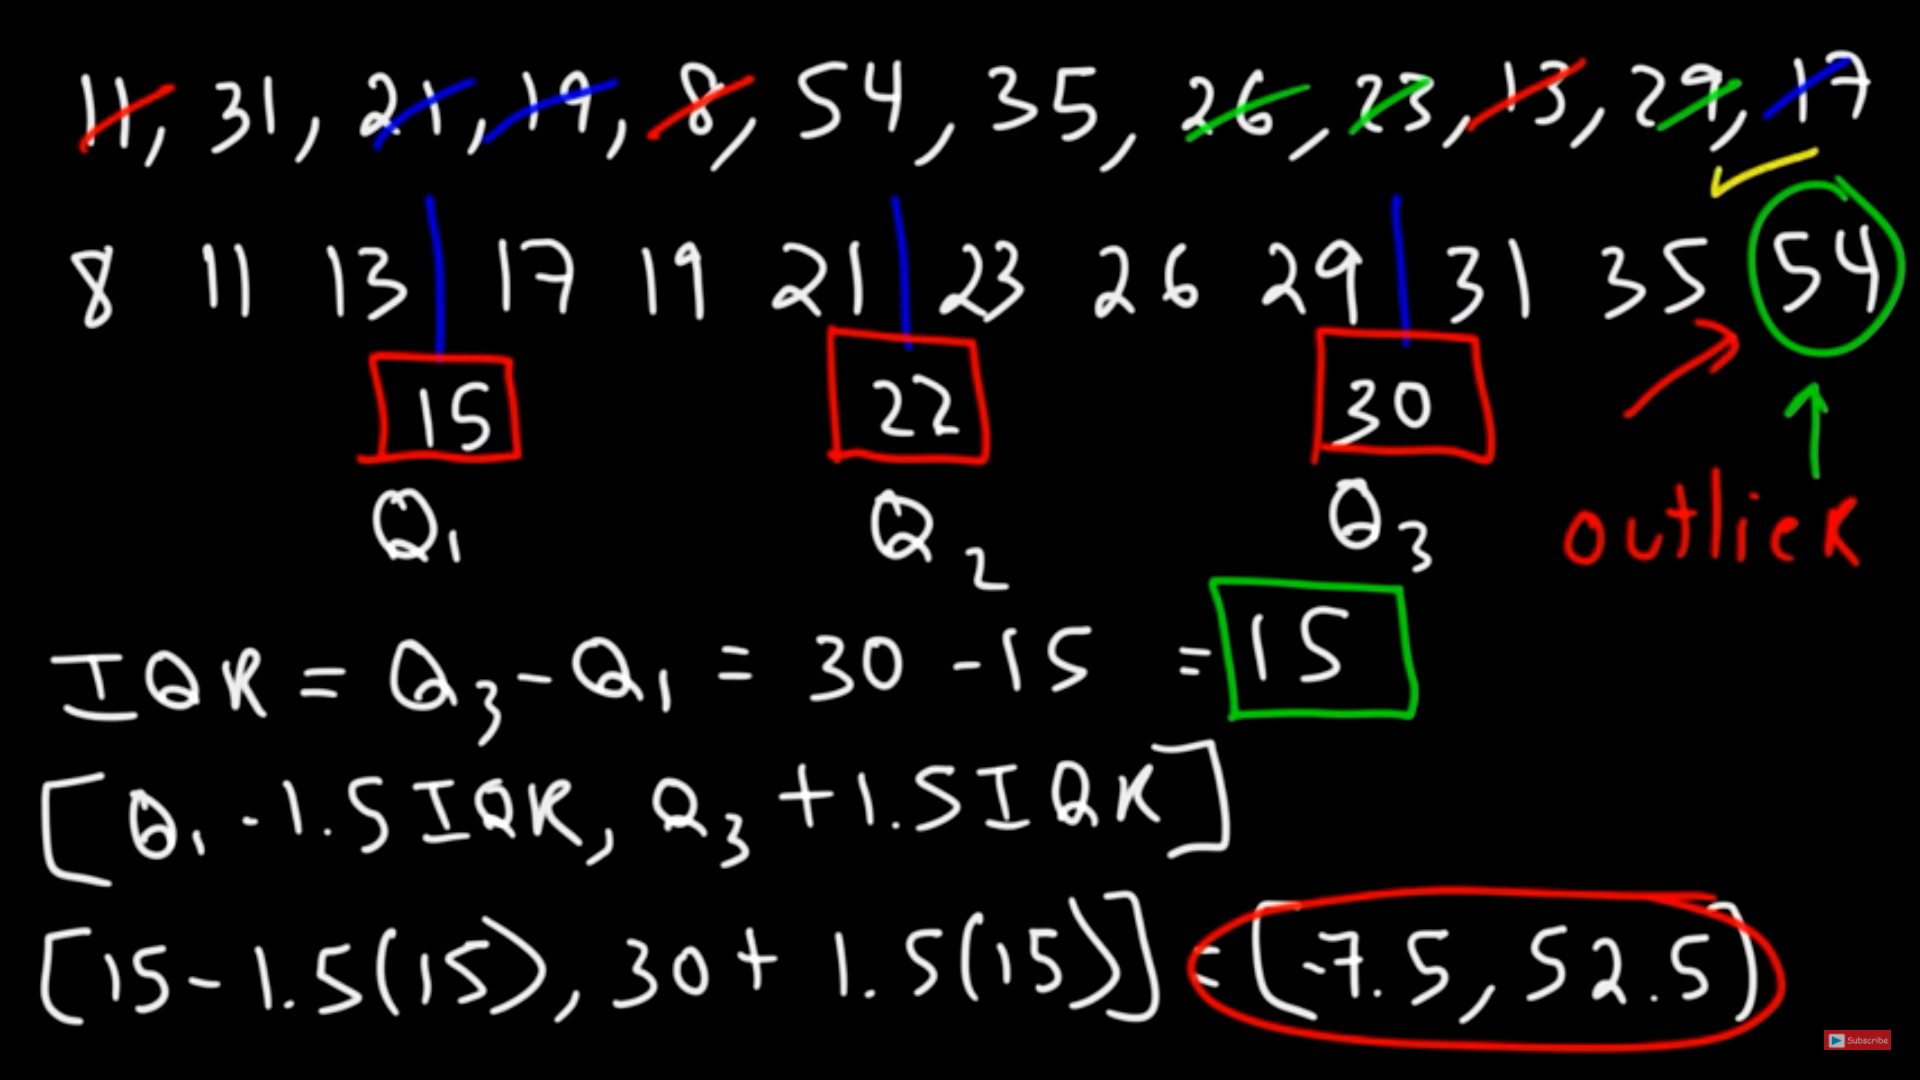 11, 31, 21, 19, 8, 54, 35, 26, 23, 13, 29, 17
8 11 13 17 19 21 23 26 29 31 35 54
15 22 30
Q1 Q2 Q3 outlier
IQR = Q3 - Q1 = 30 - 15 = 15
[Q1 - 1.5 IQR, Q3 + 1.5 IQR]
[15 - 1.5(15), 30 + 1.5(15)] = [-7.5, 52.5]
Subscribe